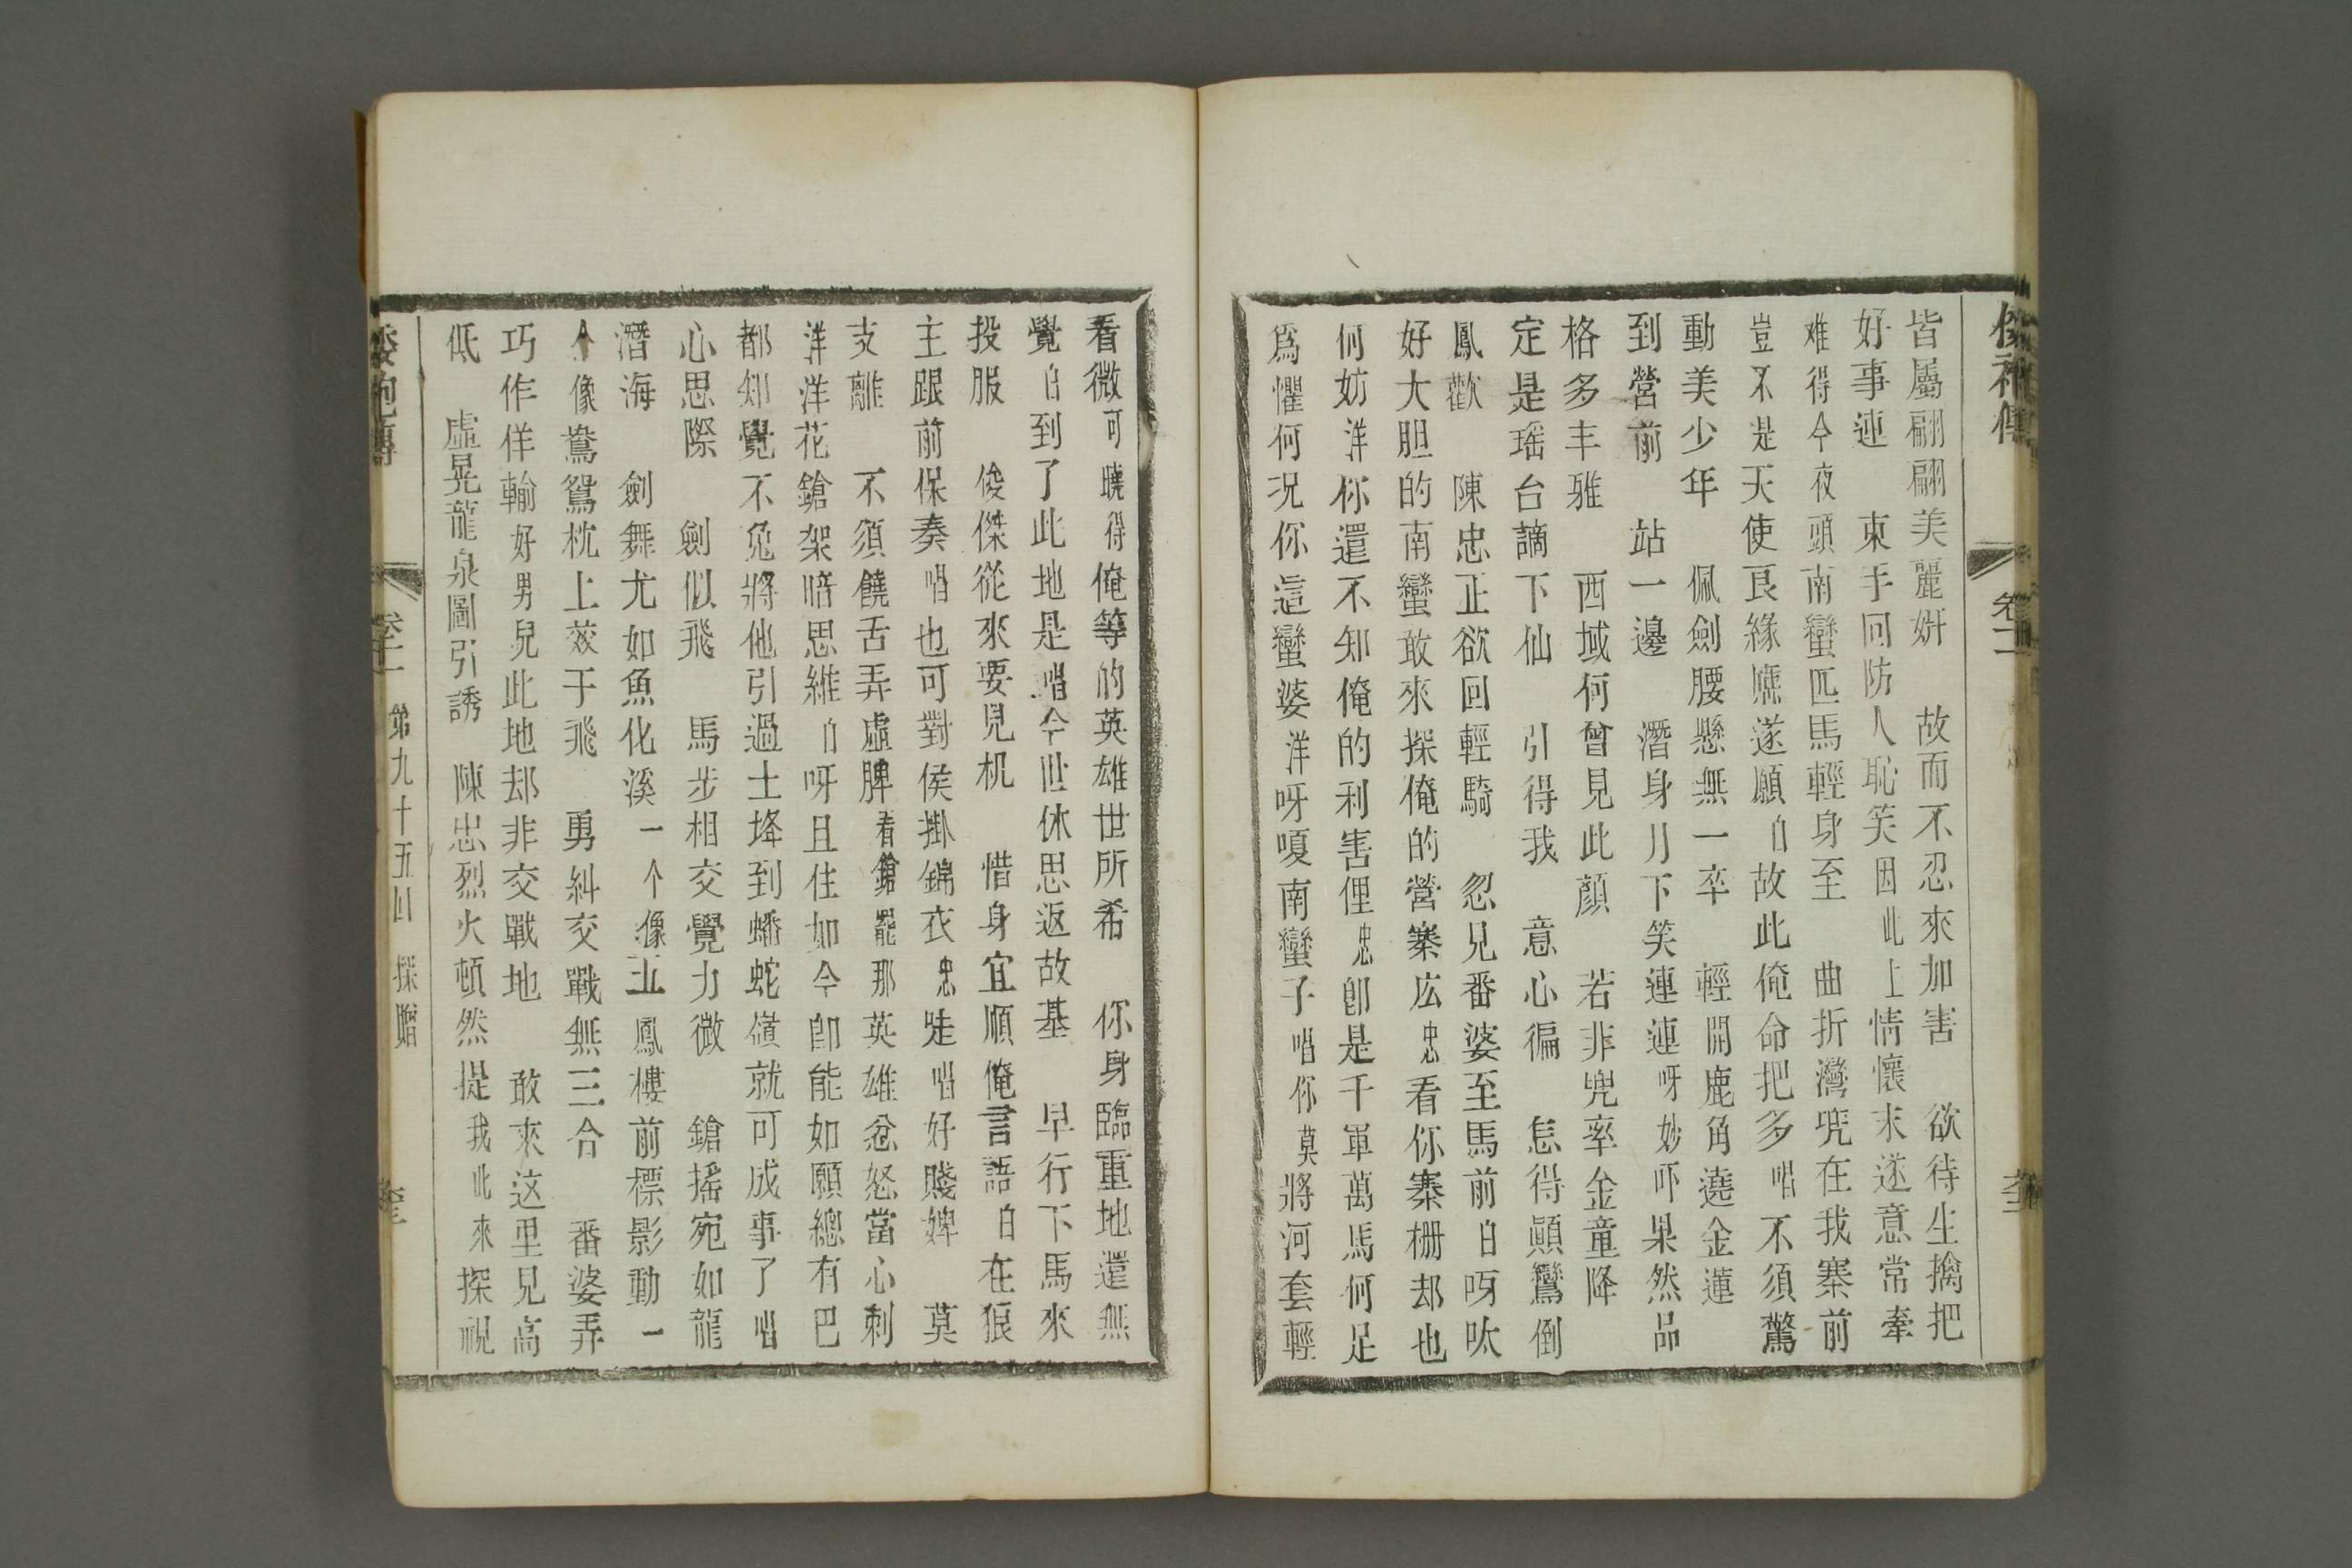 皆屬翩翩美麗妍　故而不忍來加害　欲待生擒把
好事連　東手回防人恥笑因此上情懷未遂意常牽
难得今夜頭南蠻匹馬輕身至　曲折灣兜在我寨前
豈不是天使良緣應遂願白故此俺命把多唱不須驚
動美少年　佩劍腰懸無一卒　輕開鹿角遶金蓮
到營前　站一邊　潛身月下笑連連呀妙吓果然品
格多丰雅　西域何曾見此顔　若非兜率金童降
定是瑶台謫下仙　引得我　意心徧　怎得顚鸞倒
鳳歡　陳忠正欲回輕騎　忽見番婆至馬前白呀呔
好大胆的南蠻敢來探俺的營寨広忠看你寨栅却也
何妨洋你還不知俺的利害俚忠卽是千軍萬馬何足
爲懼何况你這蠻婆洋呀嗄南蠻子唱你莫將河套輕
看微可曉得俺等的英雄世所希　你身臨重地還無
覺白到了此地是唱今世休思返故基　早行下馬來
投服　俊傑從來要見机　惜身宜順俺言語白在狼
主跟前保奏唱也可對侯掛錦衣忠唗唱好賤婢　莫
支離　不須饒舌弄虛脾看鎗罷那英雄忿怒當心刺
洋洋花鎗架暗思維白呀且住如今卽能如願總有巴
都知覺不免將他引過土垰到蟠蛇嶺就可成事了唱
心思際　劍似飛　馬步相交覺力微　鎗搖宛如龍
潛海　劍舞尤如魚化溪一个像五鳳樓前標影動一
个像鴛鴛枕上效于飛　勇糾交戰無三合　番婆弄
巧作佯輸好男兒此地却非交戰地　敢來这里見高
低　虛晃龍泉圖引誘　陳忠烈火頓然提我此來探視
卷十二　第九十五回　探贈